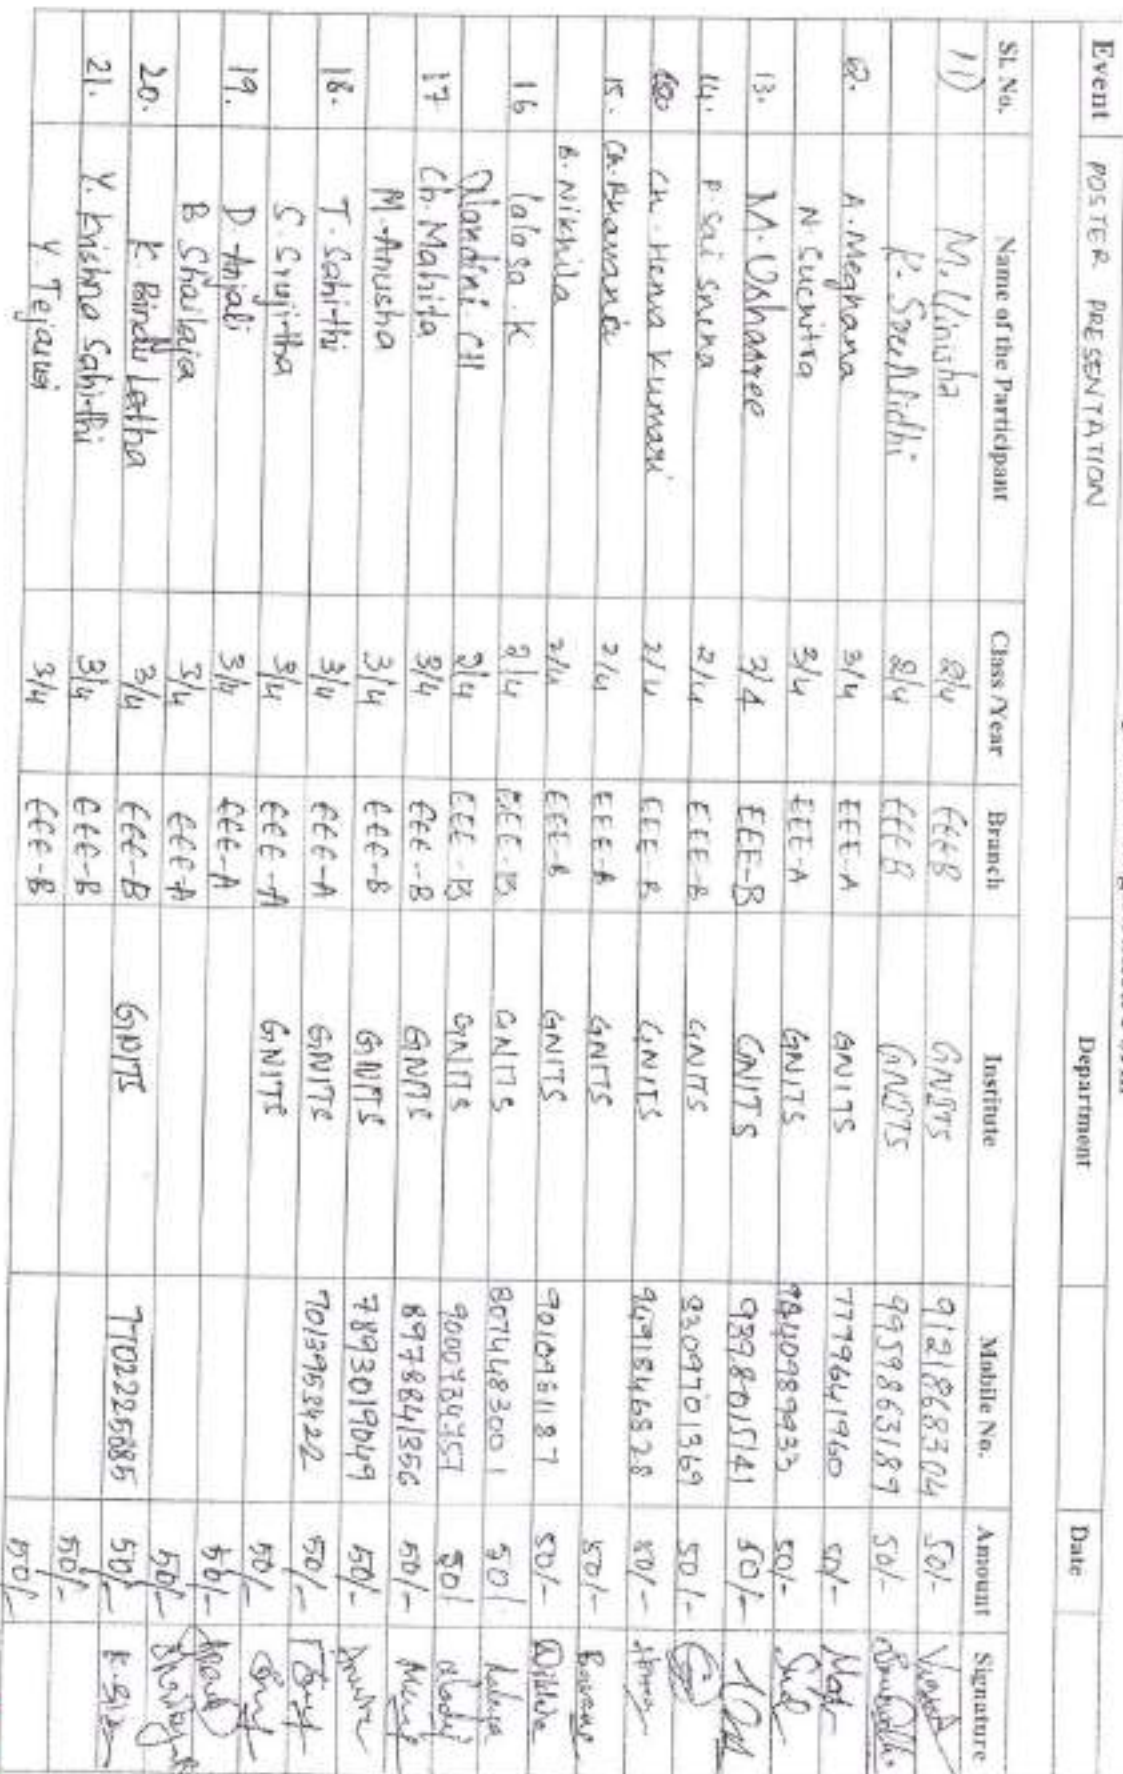 Event POSTER PRESENTATION Department Date
Sl. No. Name of the Participant Class /Year Branch Institute Mobile No. Amount Signature
11) M. Vinisha 2/4 EEEB GNITS 9121868304 50/-
P. SreeNidhi 2/4 EEEB GNITS 9959863189 50/-
12. A. Meghana 3/4 EEE-A GNITS 7779641960 50/-
N. Sucnitra 3/4 EEE-A GNITS 50/-
13. M. Ushasree 3/4 EEE-B GNITS 9398015141 50/-
14. P. Sai Sneha 2/4 EEE-B GNITS 9309701369 50/-
Ch. Hema Kumari 2/4 EEE-B GNITS 9491846328 50/-
15. Ch. Bhavani 2/4 EEE-B GNITS 50/-
B. Nikhila 2/4 EEE-B GNITS 9010951187 50/-
16 Lalasa. K 2/4 EEE-B GNITS 8074483001 50/
Nandini. CH 2/4 EEE-B GNITS 9000734357 50/
17 Ch. Mahita 3/4 EEE-B GNITS 8978841356 50/-
M. Anusha 3/4 EEE-B GNITS 7893019049 50/-
18. T. Sahithi 3/4 EEE-A GNITS 7013958422 50/-
S. Srujitha 3/4 EEE-A GNITS 50/-
19. D. Anjali 3/4 EEE-A 50/-
B Shailaja 3/4 EEE-A 50/-
20. K. Bindu Latha 3/4 EEE-B GNITS 7702225085 50/-
21. Y. Krishna Sahithi 3/4 EEE-B 50/-
Y. Tejaswi 3/4 EEE-B 50/-